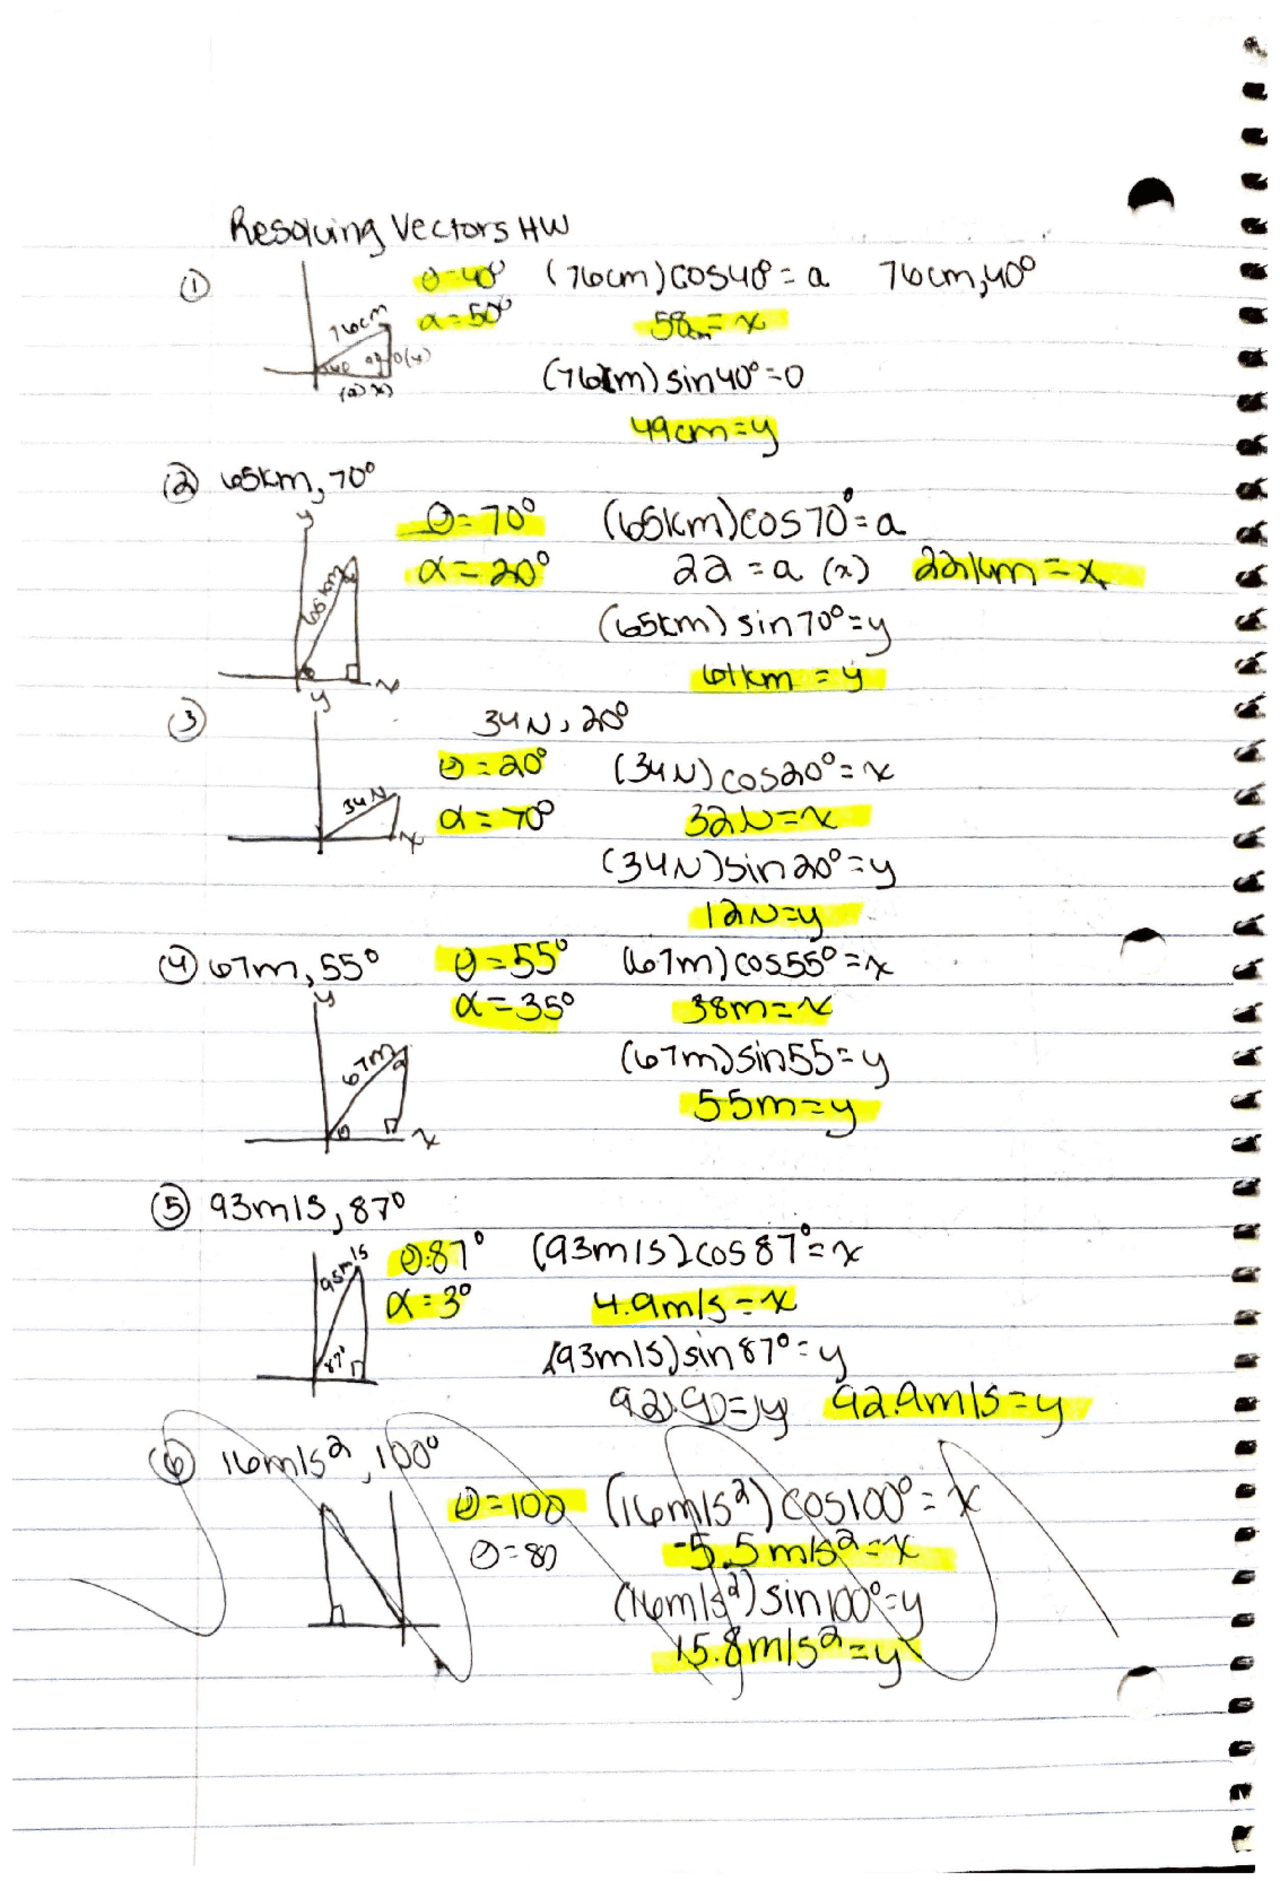 Resolving Vectors HW
① θ=40° (76cm)cos40°=a 76cm,40°
76cm α=50° 58cm=x
40 a o(y)
(a)(x) (76cm)sin40°=o
49cm=y
② 65km, 70°
y θ=70° (65km)cos70°=a
65km α=20° 22=a (x) 22km=x
(65km)sin70°=y
θ 61km=y
x
③ y 34N, 20°
θ=20° (34N)cos20°=x
34N α=70° 32N=x
x
(34N)sin20°=y
12N=y
④ 67m, 55° θ=55° (67m)cos55°=x
y α=35° 38m=x
67m (67m)sin55=y
55m=y
θ x
⑤ 93m/s, 87°
95m/s θ:87° (93m/s)cos87°=x
α=3° 4.9m/s=x
87° (93m/s)sin87°=y
92.9=y 92.9m/s=y
⑥ 16m/s², 100°
θ=100 (16m/s²)cos100°=x
θ=80 -5.5m/s²=x
(16m/s²)sin100°=y
15.8m/s²=y